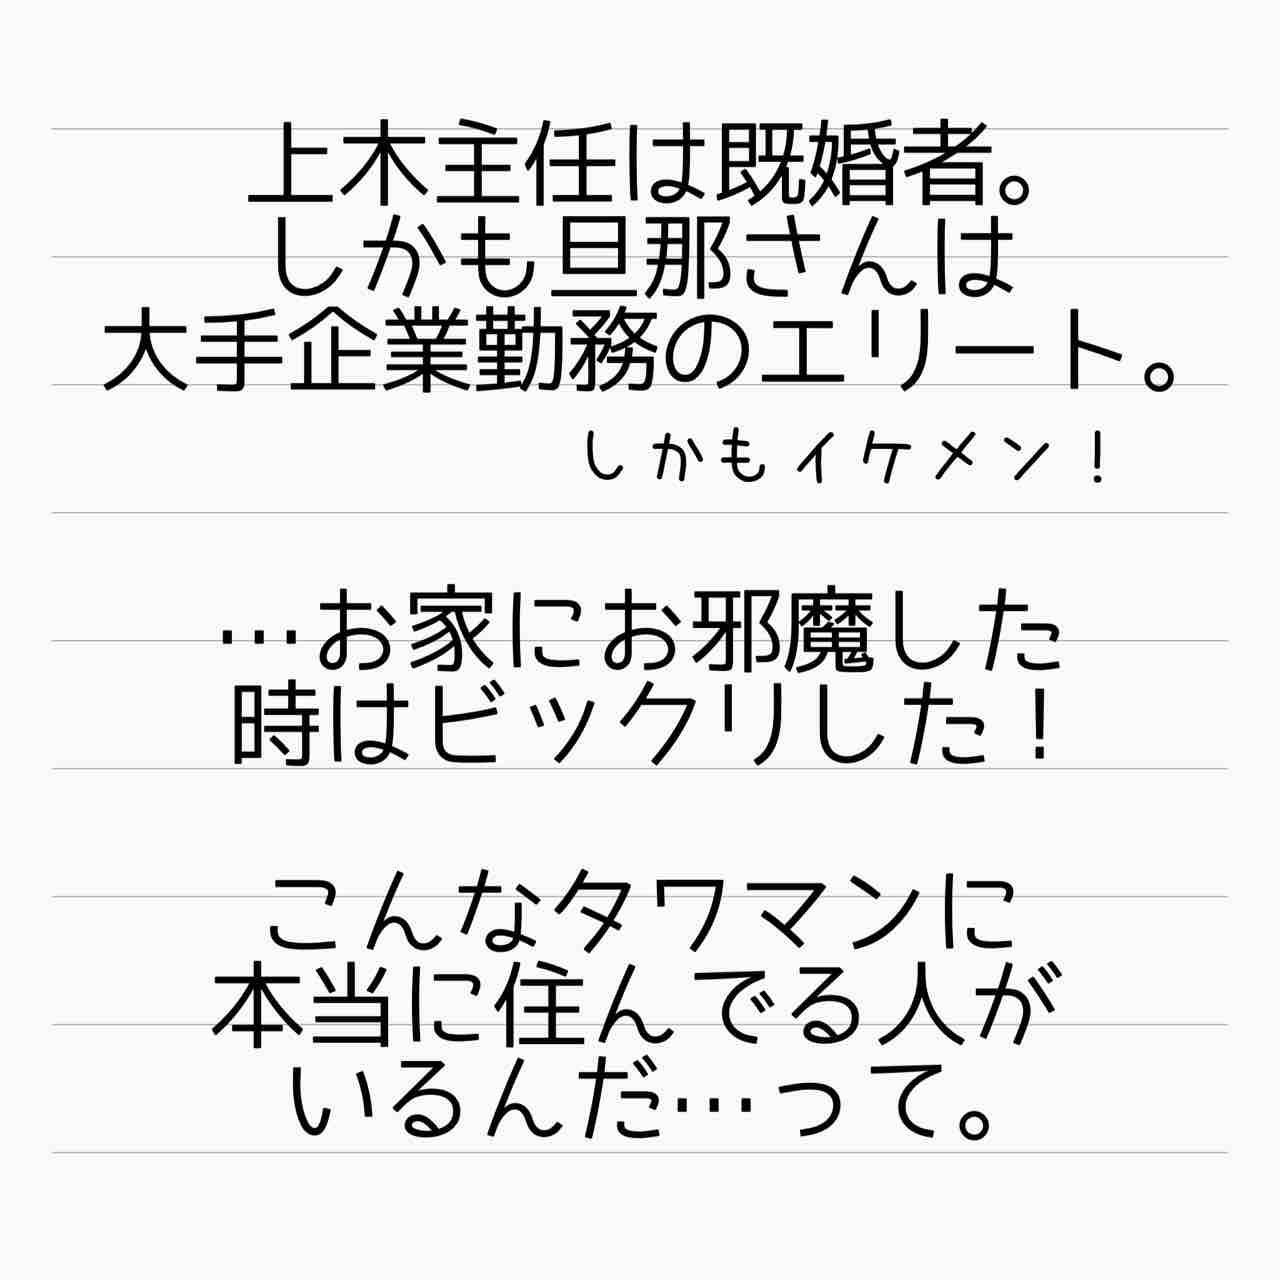 上木主任は既婚者。
しかも旦那さんは
大手企業勤務のエリート。
しかもイケメン！
…お家にお邪魔した
時はビックリした！
こんなタワマンに
本当に住んでる人が
いるんだ…って。